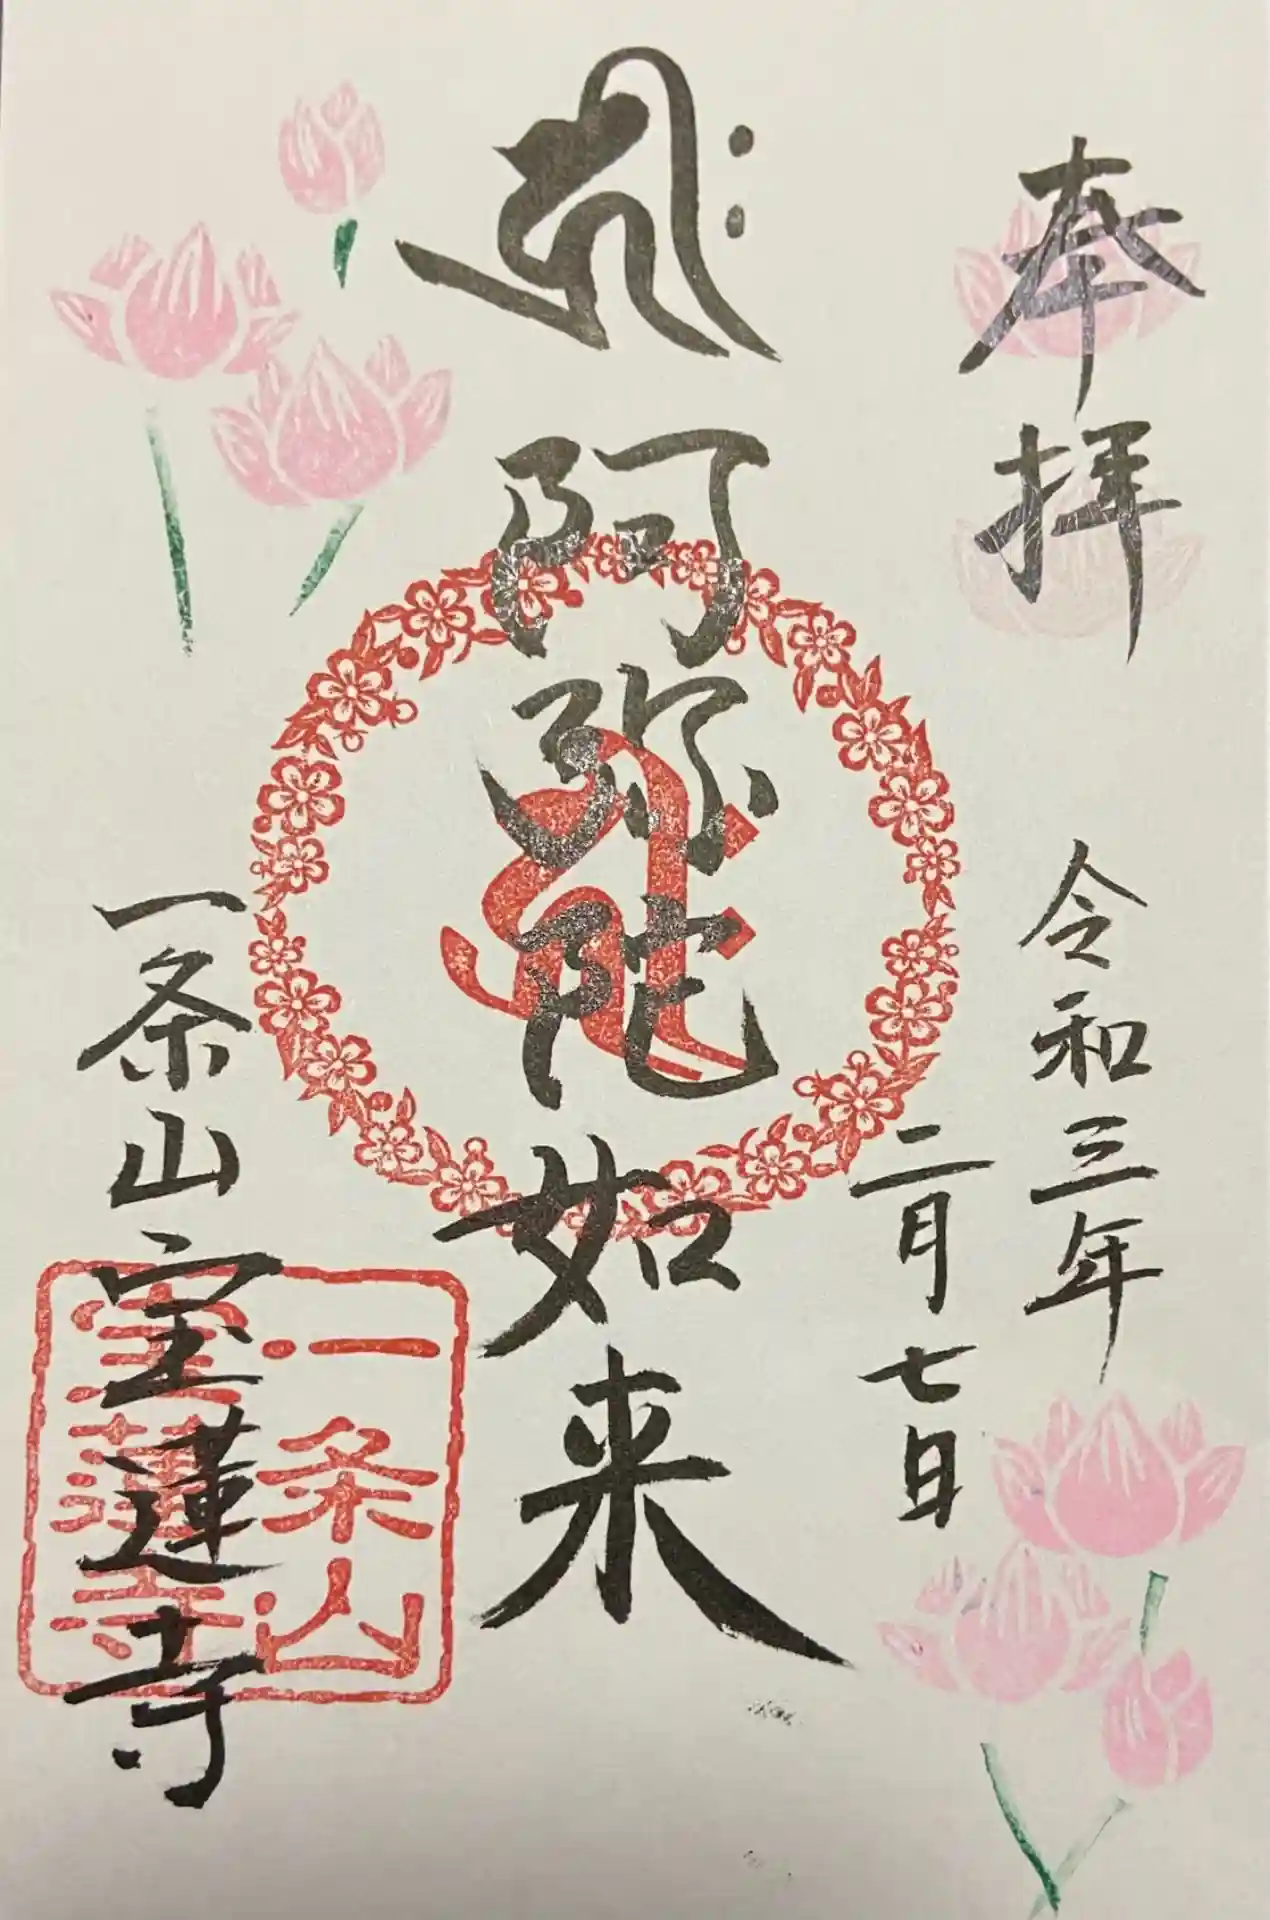 奉拝
令和三年
二月七日
𑖮𑖿𑖨𑖱𑖾
阿弥陀如来
𑖮𑖿𑖨𑖱𑖾
一条山宝蓮寺
一条山
宝蓮寺